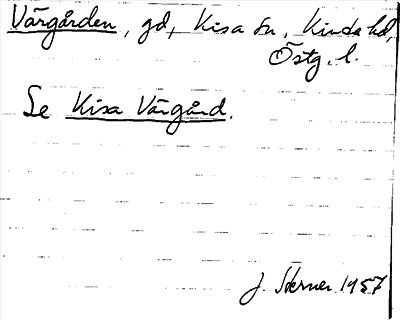 Vårgården, gd, Kisa sn, Kinda hd,
Östg. l.
Se Kisa Vårgård.
J. Sterner 1957